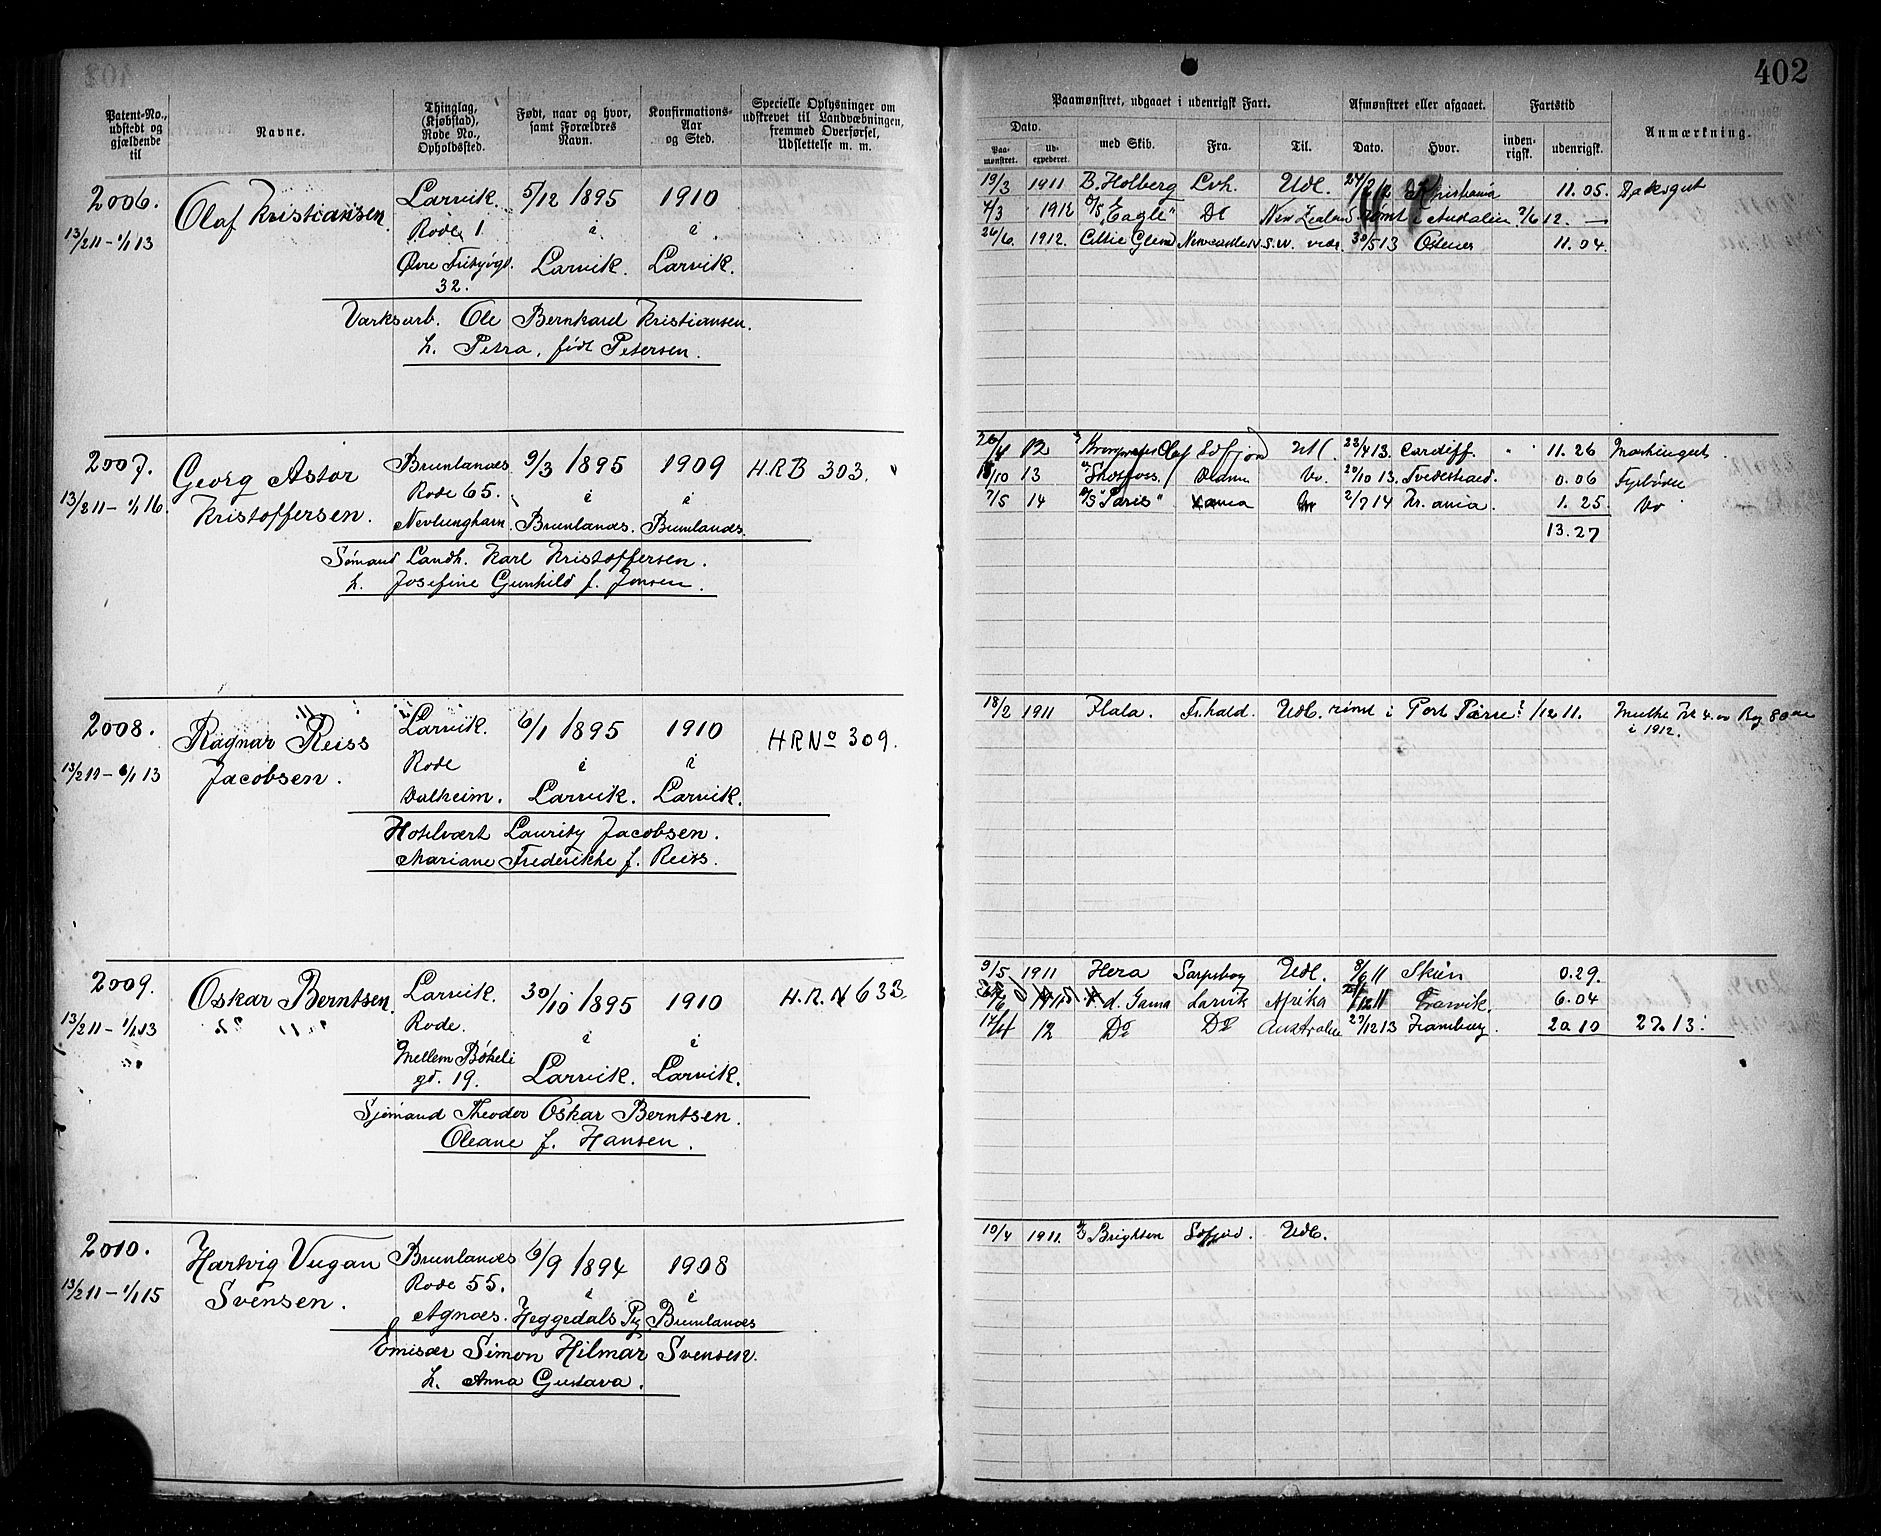 402
Patent-No., udstedt og gjældende til
Navne.
Thinglag, (Kjøbstad), Rode No., Opholdssted.
Født, naar og hvor, samt Forældres Navn.
Konfirmations-Aar og Sted.
Specielle Oplysninger om udskrevet til Landvæbningen, fremmed Overførsel, Udslettelse m. m.
Paamønstret, udgaaet i udenrigsk Fart.
Afmønstret eller afgaaet.
Fartstid
Anmærkning.
Dato.
Paa-mønstret.
Ud-expederet.
med Skib.
Fra.
Til.
Dato.
Hvor.
inden-rigsk.
udenrigsk.
2006. Olaf Kristiansen. Larvik. 5/12 1895 1910
13/2 11 – 1/1 13 Rode 1 i i
Larvik. Larvik.
32.
Værksarb. Ole Bernhard Kristiansen.
h. Petra, født Petersen.
19/3 1911 B. Holberg Lvk. Udl. Kristiania 11.05. Dæksgut
4/3 1912 "Eagle" Do New Zealand
26/6 1912. 30/5 13 11.04.
2007. Georg Astor Brunlanæs 9/3 1895 1909 H.R.B 303.
13/2 11 – 1/1 16. Kristoffersen. Rode 65. i i
Nevlungham. Brunlanæs. Brunlanæs.
Sømand Landh. Karl Kristoffersen.
h. Josefine Gunhild f. Jonsen.
12 23/4 13. Cardiff. 11.26
10 13 Skotfoss 20/10 13. Tvedestrand. 0.06 Fyrbøder
7/5 14 "Paris" 2/7 14 Kr.ania. 1.25 Do
13.27
2008. Ragnar Reiss Larvik. 6/1 1895 1910 H R No 309.
13/2 11 – 1/1 13 Jacobsen. Rode i i
Dalheim. Larvik. Larvik.
Hotelvært Lauritz Jacobsen.
Mariane Frederikke f. Reiss.
18/2 1911 Fr.hald. Udl. rømt i Port Pirie /12 11.
i 1912.
2009. Oskar Berntsen. Larvik. 30/10 1895 1910 H.R.N 633
13/2 11 – 1/1 13 Rode. i i
Mellem Bøkeli
gd. 19. Larvik. Larvik.
Sjømand Theodor Oskar Berntsen.
Oleane f. Hansen.
9/5 1911 Hera Sarpsborg Udl. 8/6 11 Skien 0.29.
d. Gama Larvik Afrika 6.04
12 Do Do Australien 27/12 13 Hamburg. 20 10 27.13.
2010. Hartvig Vugan Brunlanæs 6/9 1894 1908
13/2 11 – 1/1 15 Svensen. Rode 55. i i
Agnæs. Heggedals Pg. Brunlanæs
Emisær Simon Hilmar Svensen.
h. Anna Gustava.
19/4 1911. Udl.